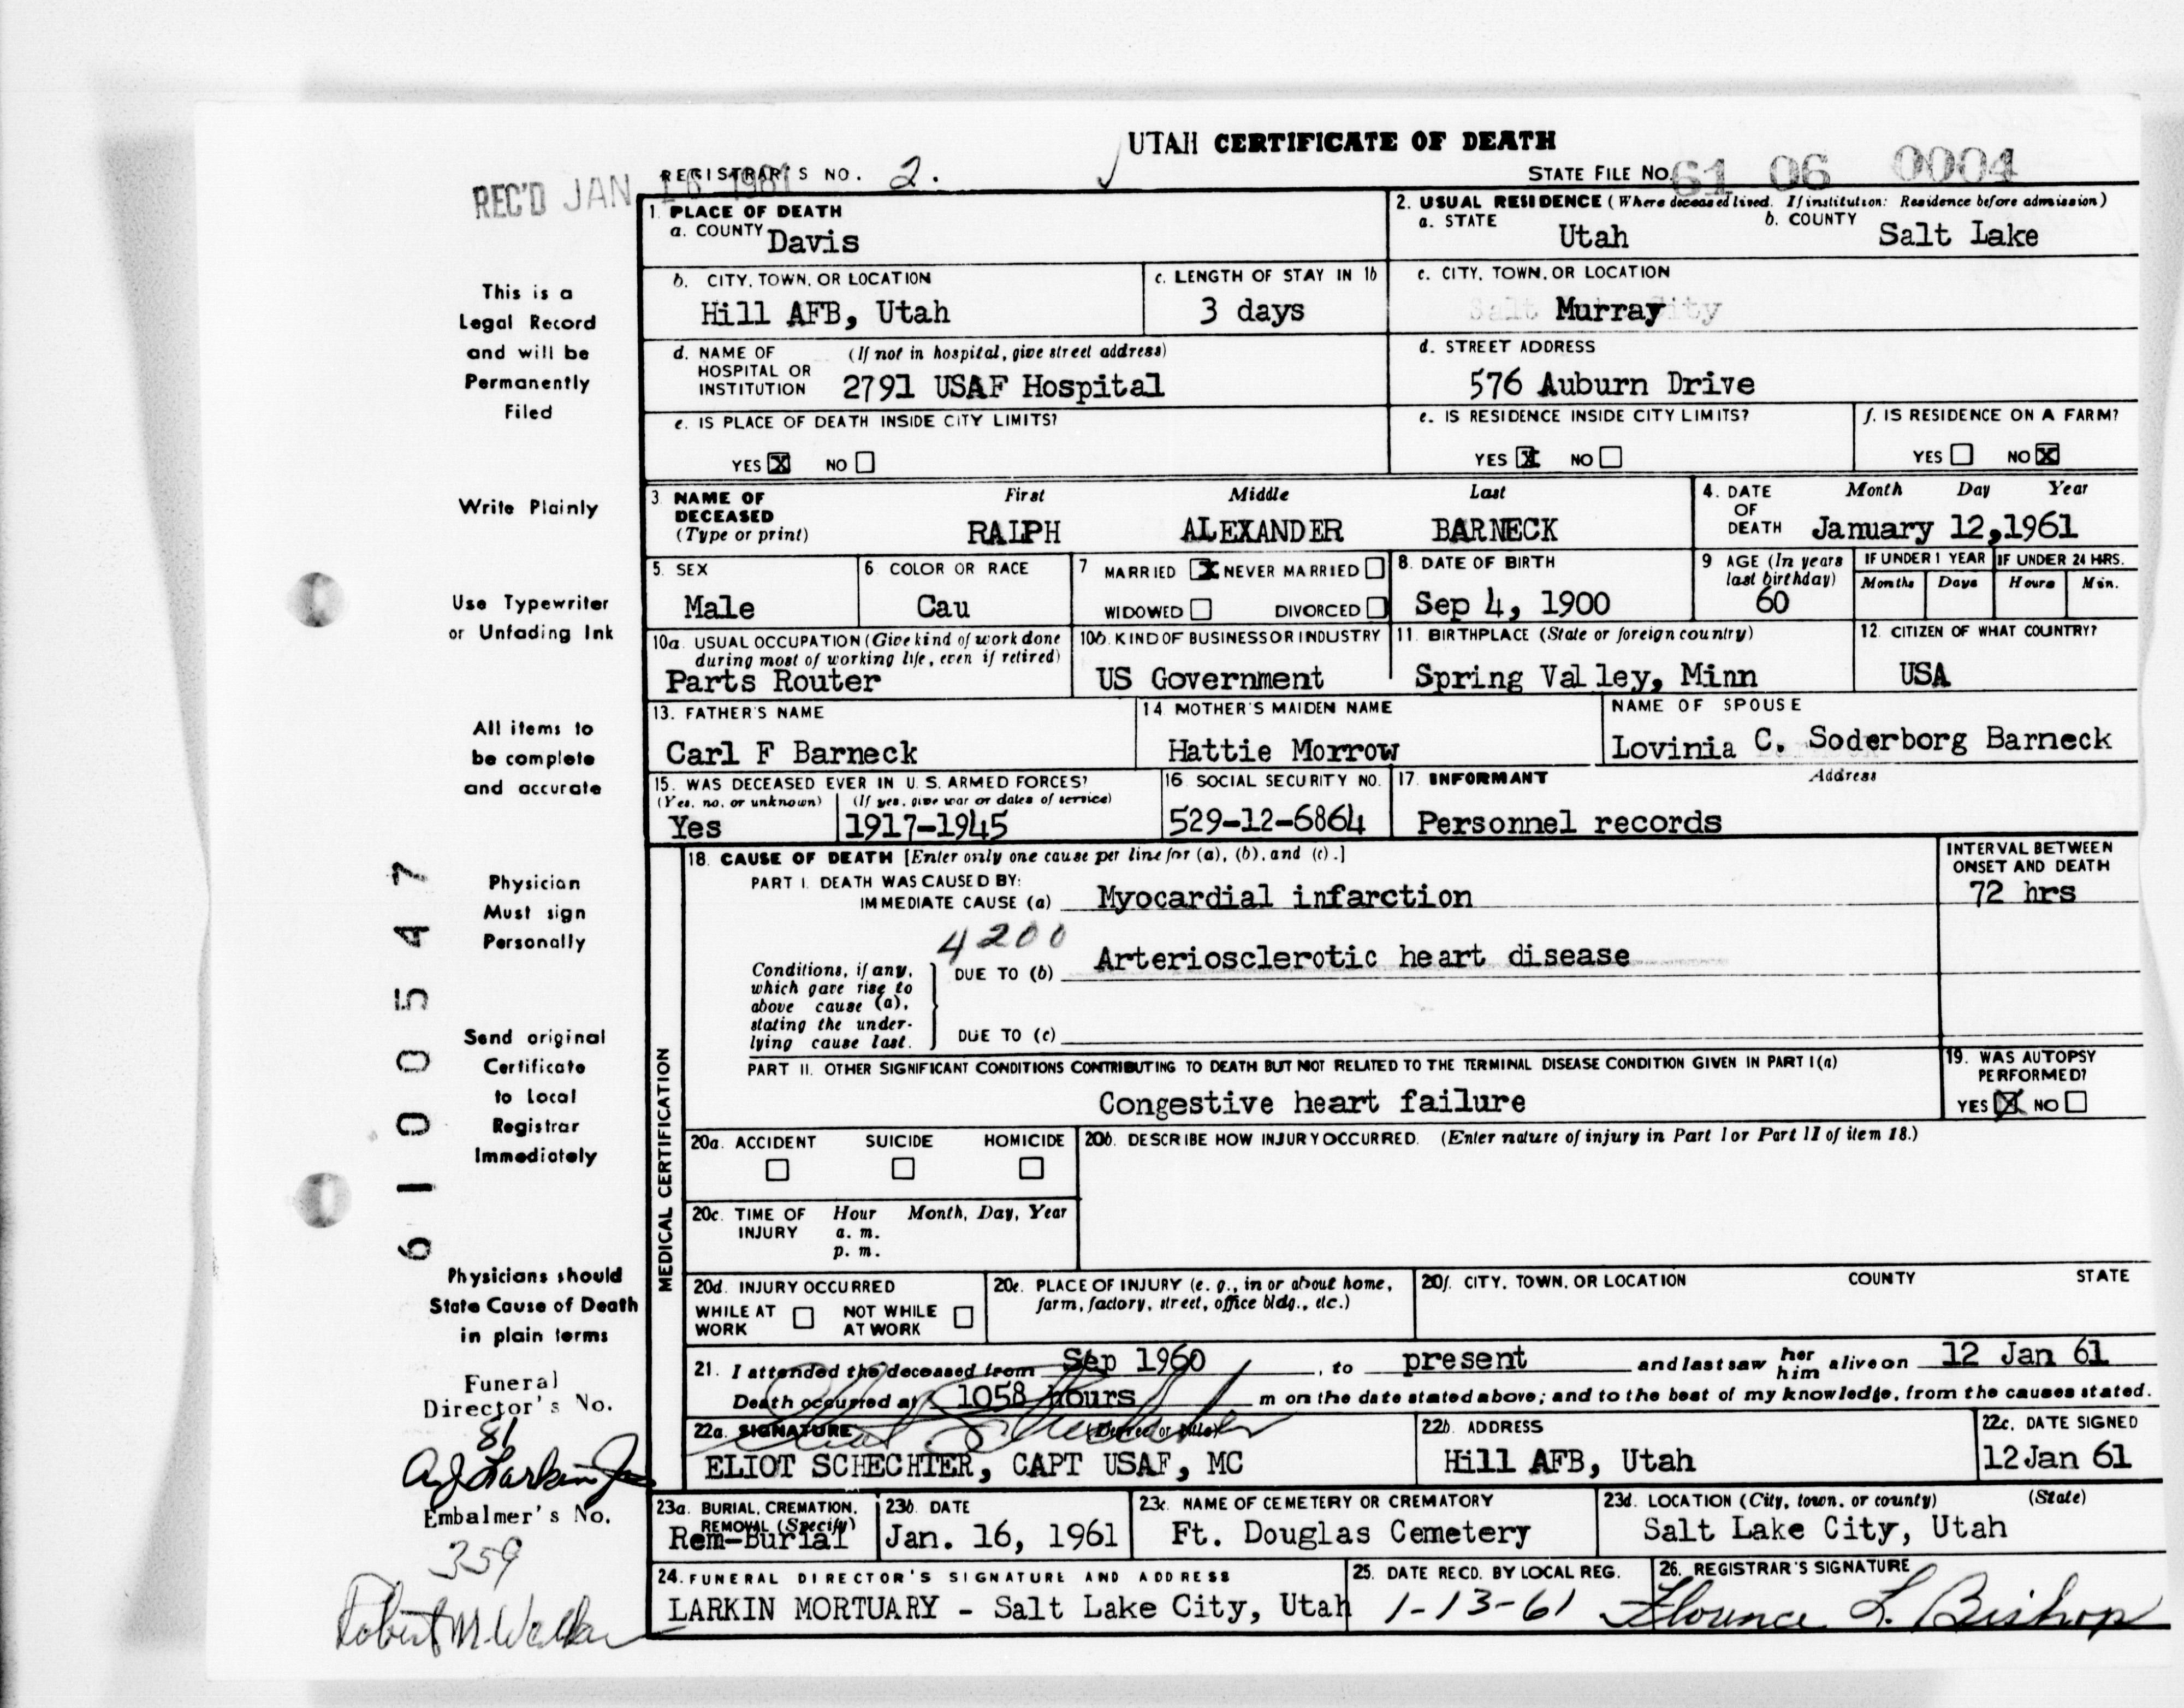 UTAH CERTIFICATE OF DEATH
REC'D JAN 16 1961 REGISTRAR'S NO. 2. STATE FILE NO. 61 06 0004
1. PLACE OF DEATH
a. COUNTY Davis
2. USUAL RESIDENCE (Where deceased lived. If institution: Residence before admission)
a. STATE Utah b. COUNTY Salt Lake
b. CITY, TOWN, OR LOCATION Hill AFB, Utah
c. LENGTH OF STAY IN 1b 3 days
c. CITY, TOWN, OR LOCATION Murray
d. NAME OF HOSPITAL OR INSTITUTION (If not in hospital, give street address) 2791 USAF Hospital
d. STREET ADDRESS 576 Auburn Drive
e. IS PLACE OF DEATH INSIDE CITY LIMITS?
YES X NO
e. IS RESIDENCE INSIDE CITY LIMITS?
YES X NO
f. IS RESIDENCE ON A FARM?
YES NO X
3 NAME OF DECEASED (Type or print) First Middle Last
RALPH ALEXANDER BARNECK
4. DATE OF DEATH Month Day Year
January 12, 1961
5. SEX Male
6. COLOR OR RACE Cau
7 MARRIED X NEVER MARRIED
WIDOWED DIVORCED
8. DATE OF BIRTH Sep 4, 1900
9 AGE (In years last birthday) 60
IF UNDER 1 YEAR Months Days
IF UNDER 24 HRS. Hours Min.
10a. USUAL OCCUPATION (Give kind of work done during most of working life, even if retired)
Parts Router
10b. KIND OF BUSINESS OR INDUSTRY
US Government
11. BIRTHPLACE (State or foreign country)
Spring Valley, Minn
12. CITIZEN OF WHAT COUNTRY?
USA
13. FATHER'S NAME
Carl F Barneck
14 MOTHER'S MAIDEN NAME
Hattie Morrow
NAME OF SPOUSE
Lovinia C. Soderborg Barneck
15. WAS DECEASED EVER IN U. S. ARMED FORCES?
(Yes, no, or unknown) (If yes, give war or dates of service)
Yes 1917-1945
16 SOCIAL SECURITY NO.
529-12-6864
17. INFORMANT Address
Personnel records
MEDICAL CERTIFICATION
18. CAUSE OF DEATH [Enter only one cause per line for (a), (b), and (c).]
INTERVAL BETWEEN ONSET AND DEATH
PART I. DEATH WAS CAUSED BY:
IMMEDIATE CAUSE (a) Myocardial infarction 72 hrs
4200
Conditions, if any, which gave rise to above cause (a), stating the underlying cause last.
DUE TO (b) Arteriosclerotic heart disease
DUE TO (c)
PART II. OTHER SIGNIFICANT CONDITIONS CONTRIBUTING TO DEATH BUT NOT RELATED TO THE TERMINAL DISEASE CONDITION GIVEN IN PART I(a)
Congestive heart failure
19. WAS AUTOPSY PERFORMED?
YES X NO
20a. ACCIDENT SUICIDE HOMICIDE
20b. DESCRIBE HOW INJURY OCCURRED. (Enter nature of injury in Part I or Part II of item 18.)
20c. TIME OF INJURY Hour Month, Day, Year
a. m.
p. m.
20d. INJURY OCCURRED
WHILE AT WORK NOT WHILE AT WORK
20e. PLACE OF INJURY (e. g., in or about home, farm, factory, street, office bldg., etc.)
20f. CITY, TOWN, OR LOCATION COUNTY STATE
21. I attended the deceased from Sep 1960, to present and last saw her him alive on 12 Jan 61
Death occurred at 1058 hours m on the date stated above; and to the best of my knowledge, from the causes stated.
22a. SIGNATURE (Degree or title)
Eliot Schechter
ELIOT SCHECHTER, CAPT USAF, MC
22b. ADDRESS
Hill AFB, Utah
22c. DATE SIGNED
12 Jan 61
23a. BURIAL, CREMATION, REMOVAL (Specify)
Rem-Burial
23b. DATE
Jan. 16, 1961
23c. NAME OF CEMETERY OR CREMATORY
Ft. Douglas Cemetery
23d. LOCATION (City, town, or county) (State)
Salt Lake City, Utah
24. FUNERAL DIRECTOR'S SIGNATURE AND ADDRESS
LARKIN MORTUARY - Salt Lake City, Utah
25. DATE RECD. BY LOCAL REG.
1-13-61
26. REGISTRAR'S SIGNATURE
Florence L. Bishop
This is a
Legal Record
and will be
Permanently
Filed
Write Plainly
Use Typewriter
or Unfading Ink
All items to
be complete
and accurate
Physician
Must sign
Personally
Send original
Certificate
to Local
Registrar
Immediately
Physicians should
State Cause of Death
in plain terms
6100547
Funeral
Director's No.
81
A J Larkin Jr
Embalmer's No.
359
Robert M. Walker